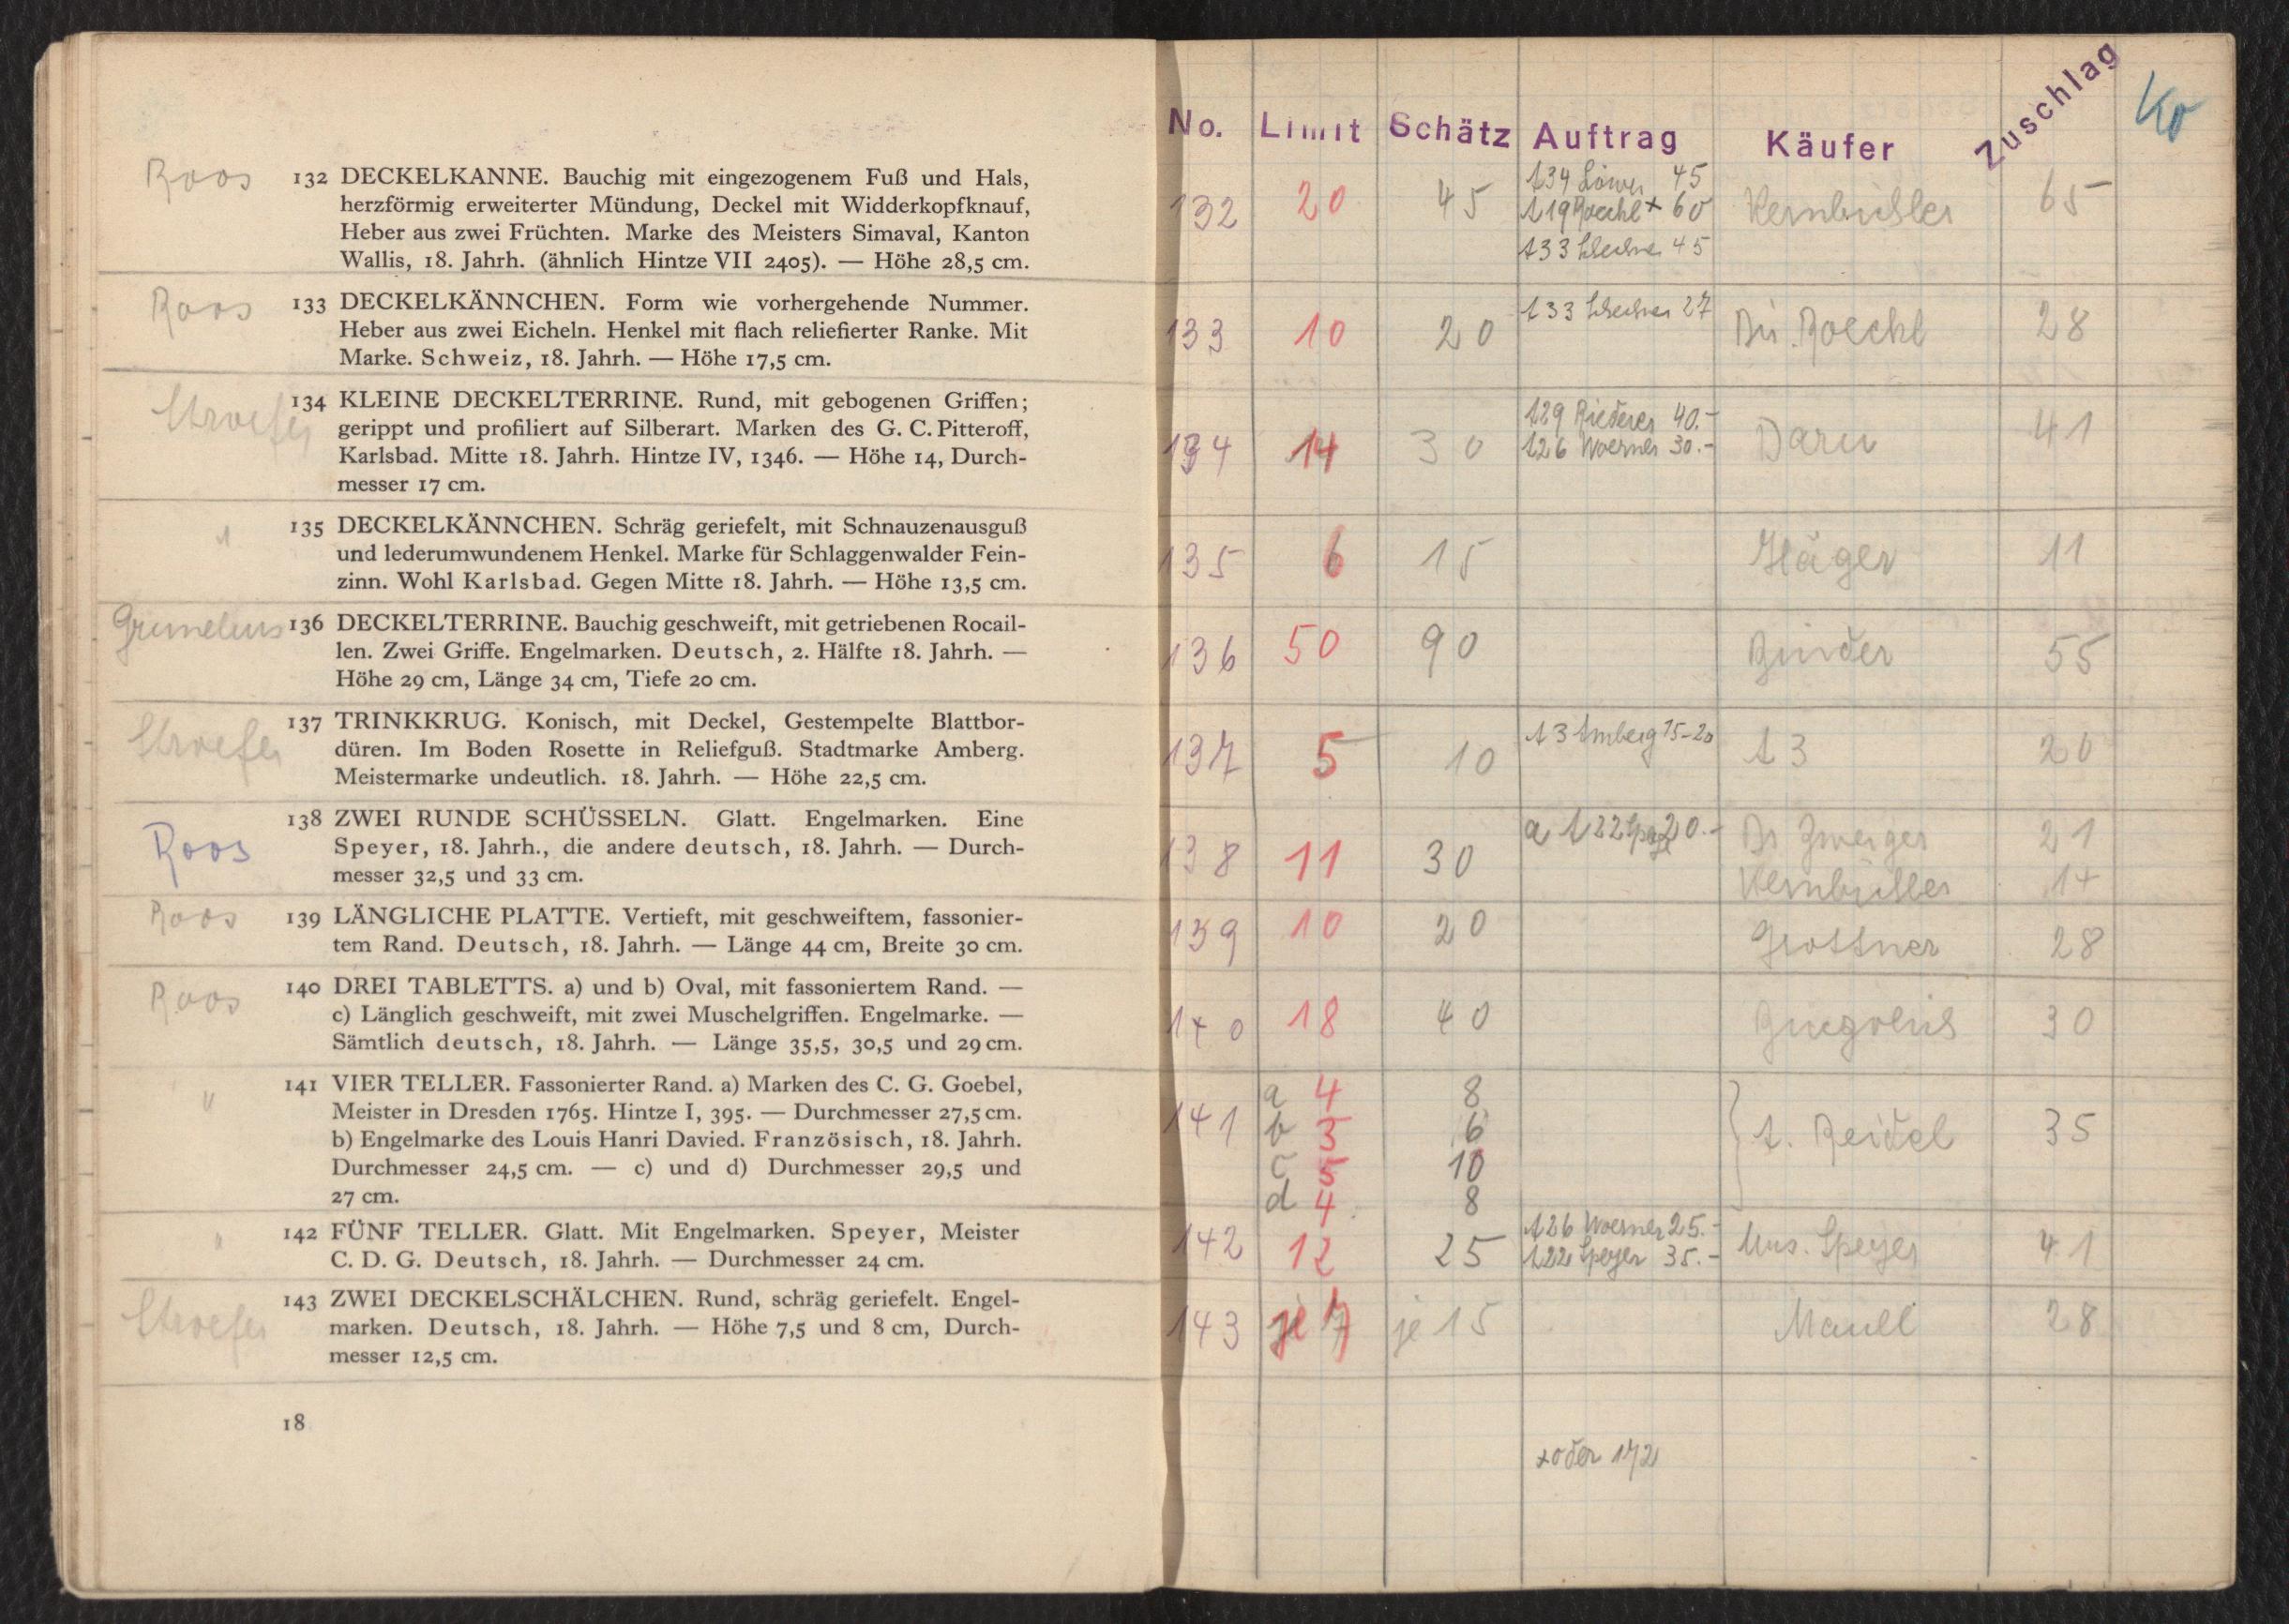 Roos
132 DECKELKANNE. Bauchig mit eingezogenem Fuß und Hals,
herzförmig erweiterter Mündung, Deckel mit Widderkopfknauf,
Heber aus zwei Früchten. Marke des Meisters Simaval, Kanton
Wallis, 18. Jahrh. (ähnlich Hintze VII 2405). — Höhe 28,5 cm.
Roos
133 DECKELKÄNNCHEN. Form wie vorhergehende Nummer.
Heber aus zwei Eicheln. Henkel mit flach reliefierter Ranke. Mit
Marke. Schweiz, 18. Jahrh. — Höhe 17,5 cm.
Stroefer
134 KLEINE DECKELTERRINE. Rund, mit gebogenen Griffen;
gerippt und profiliert auf Silberart. Marken des G. C. Pitteroff,
Karlsbad. Mitte 18. Jahrh. Hintze IV, 1346. — Höhe 14, Durch-
messer 17 cm.
135 DECKELKÄNNCHEN. Schräg geriefelt, mit Schnauzenausguß
und lederumwundenem Henkel. Marke für Schlaggenwalder Fein-
zinn. Wohl Karlsbad. Gegen Mitte 18. Jahrh. — Höhe 13,5 cm.
Grunelius
136 DECKELTERRINE. Bauchig geschweift, mit getriebenen Rocail-
len. Zwei Griffe. Engelmarken. Deutsch, 2. Hälfte 18. Jahrh. —
Höhe 29 cm, Länge 34 cm, Tiefe 20 cm.
Stroefer
137 TRINKKRUG. Konisch, mit Deckel, Gestempelte Blattbor-
düren. Im Boden Rosette in Reliefguß. Stadtmarke Amberg.
Meistermarke undeutlich. 18. Jahrh. — Höhe 22,5 cm.
Roos
138 ZWEI RUNDE SCHÜSSELN. Glatt. Engelmarken. Eine
Speyer, 18. Jahrh., die andere deutsch, 18. Jahrh. — Durch-
messer 32,5 und 33 cm.
Roos
139 LÄNGLICHE PLATTE. Vertieft, mit geschweiftem, fassonier-
tem Rand. Deutsch, 18. Jahrh. — Länge 44 cm, Breite 30 cm.
Roos
140 DREI TABLETTS. a) und b) Oval, mit fassoniertem Rand. —
c) Länglich geschweift, mit zwei Muschelgriffen. Engelmarke. —
Sämtlich deutsch, 18. Jahrh. — Länge 35,5, 30,5 und 29 cm.
"
141 VIER TELLER. Fassonierter Rand. a) Marken des C. G. Goebel,
Meister in Dresden 1765. Hintze I, 395. — Durchmesser 27,5 cm.
b) Engelmarke des Louis Hanri Davied. Französisch, 18. Jahrh.
Durchmesser 24,5 cm. — c) und d) Durchmesser 29,5 und
27 cm.
"
142 FÜNF TELLER. Glatt. Mit Engelmarken. Speyer, Meister
C. D. G. Deutsch, 18. Jahrh. — Durchmesser 24 cm.
Stroefer
143 ZWEI DECKELSCHÄLCHEN. Rund, schräg geriefelt. Engel-
marken. Deutsch, 18. Jahrh. — Höhe 7,5 und 8 cm, Durch-
messer 12,5 cm.
18
No. Limit Schätz Auftrag Käufer Zuschlag
A34 Löwer 45
132 20 45 A19 Roeckl + 60 Kernbichler 65
A33 45
A33 27
133 10 20 Dir. Roeckl 28
A29 Riederer 40.-
134 14 30 A26 Woerner 30.- Daru 41
135 6 15 Häger 11
136 50 90 Binder 55
137 5 10 A3 Amberg 15-20 A3 20
138 11 30 a A22 20.- Dr Zwerger 21
Kernbichler 14
139 10 20 Grottner 28
140 18 40 30
141 a 4 8
b 3 6 A. Reidel 35
c 5 10
d 4 8
142 12 25 A26 Woerner 25.-
A22 Speyer 35.- Mus. Speyer 41
143 je 7 je 15 Maull 28
+oder 172